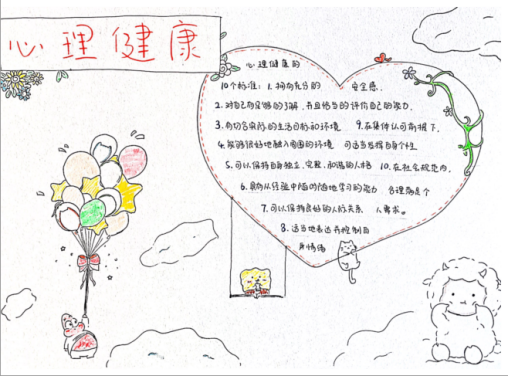 心理健康
心理健康的
10个标准：1.拥有充分的安全感.
2.对自己有足够的了解，并且恰当的评价自己的能力.
3.有切合实际的生活目标和环境 9.在集体认可前提下.
4.能够很好地融入周围的环境 可适当发挥自身个性.
5.可以保持自身独立、完整、和谐的人格 10.在社会规范内.
6.具有从经验中随时随地学习的能力 合理满足个
7.可以保持良好的人际关系 人需求.
8.适当地表达并控制自
身情绪